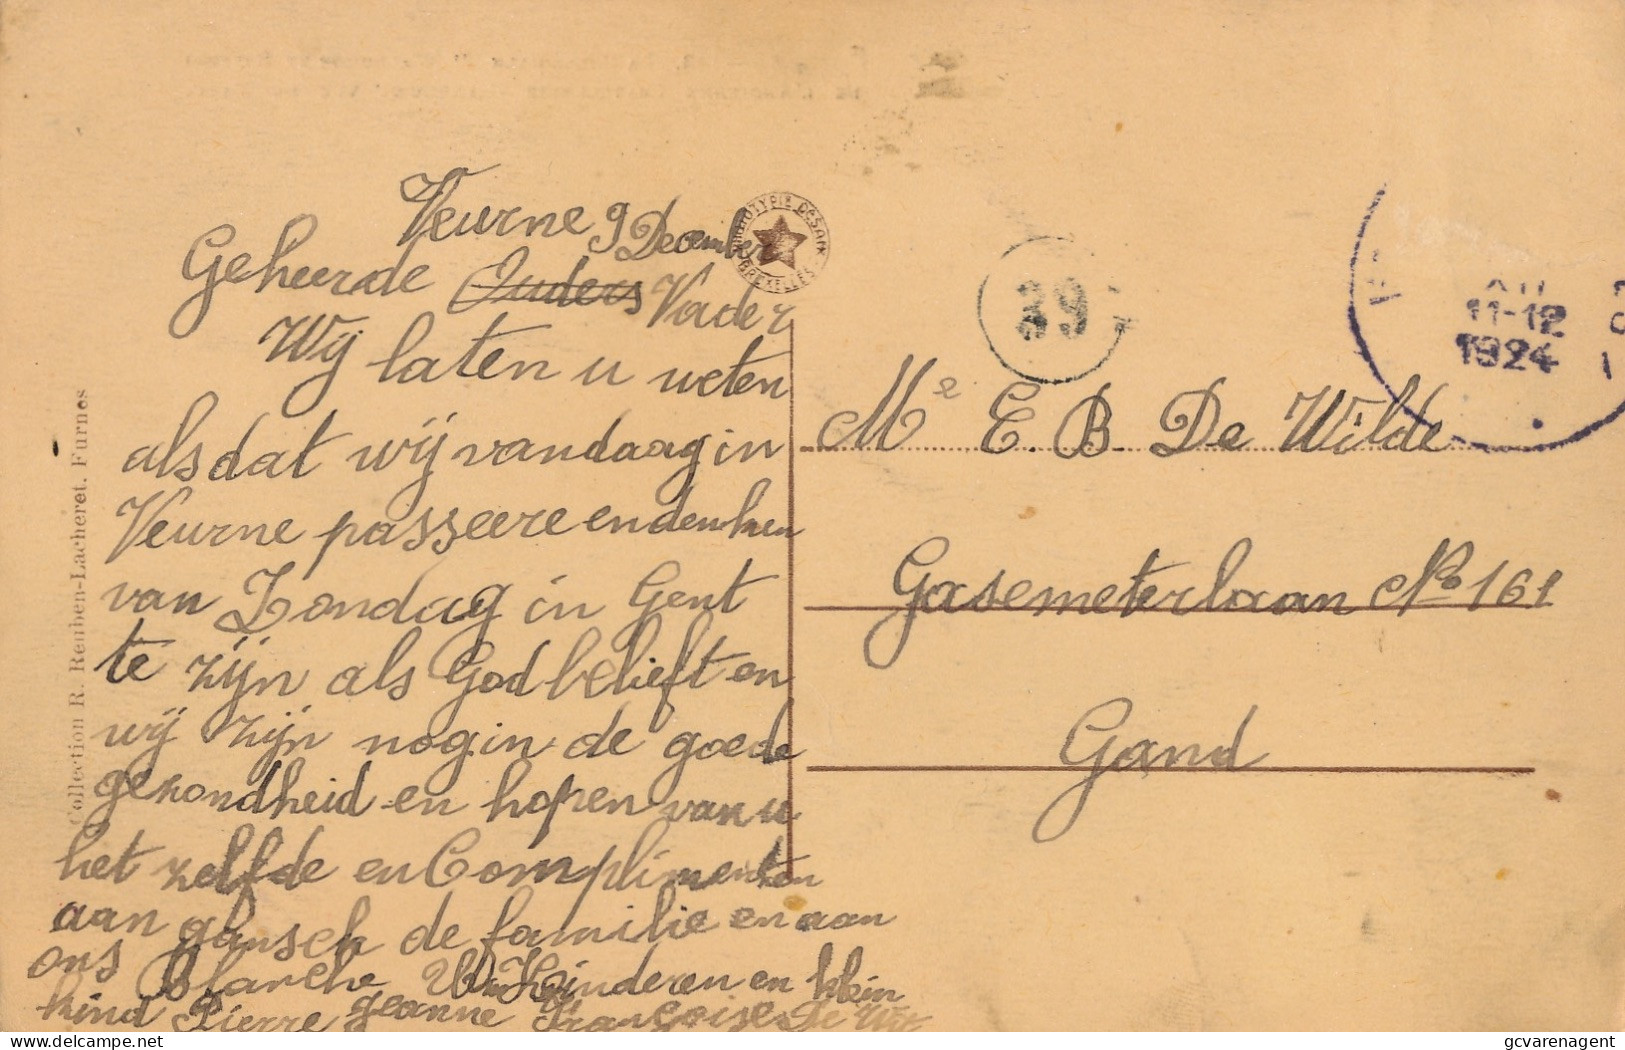 Veurne 9 December
Geheerde Ouders Vader
Wij laten u weten
als dat wij vandaag in
Veurne passeere en denken
van Zondag in Gent
te zijn als God belieft en
wij zijn nog in de goede
gezondheid en hopen van u
het zelfde en Complimenten
aan gansch de familie en aan
ons Blanche Uw Kinderen en klein
kind Pierre Jeanne Françoise De
Collection R. Reuben-Lacheret. Furnes
BRUXELLES
39
11-12
1924
Me E. B. De Wilde
Gasemeterlaan No 161
Gand
gcvarenagent